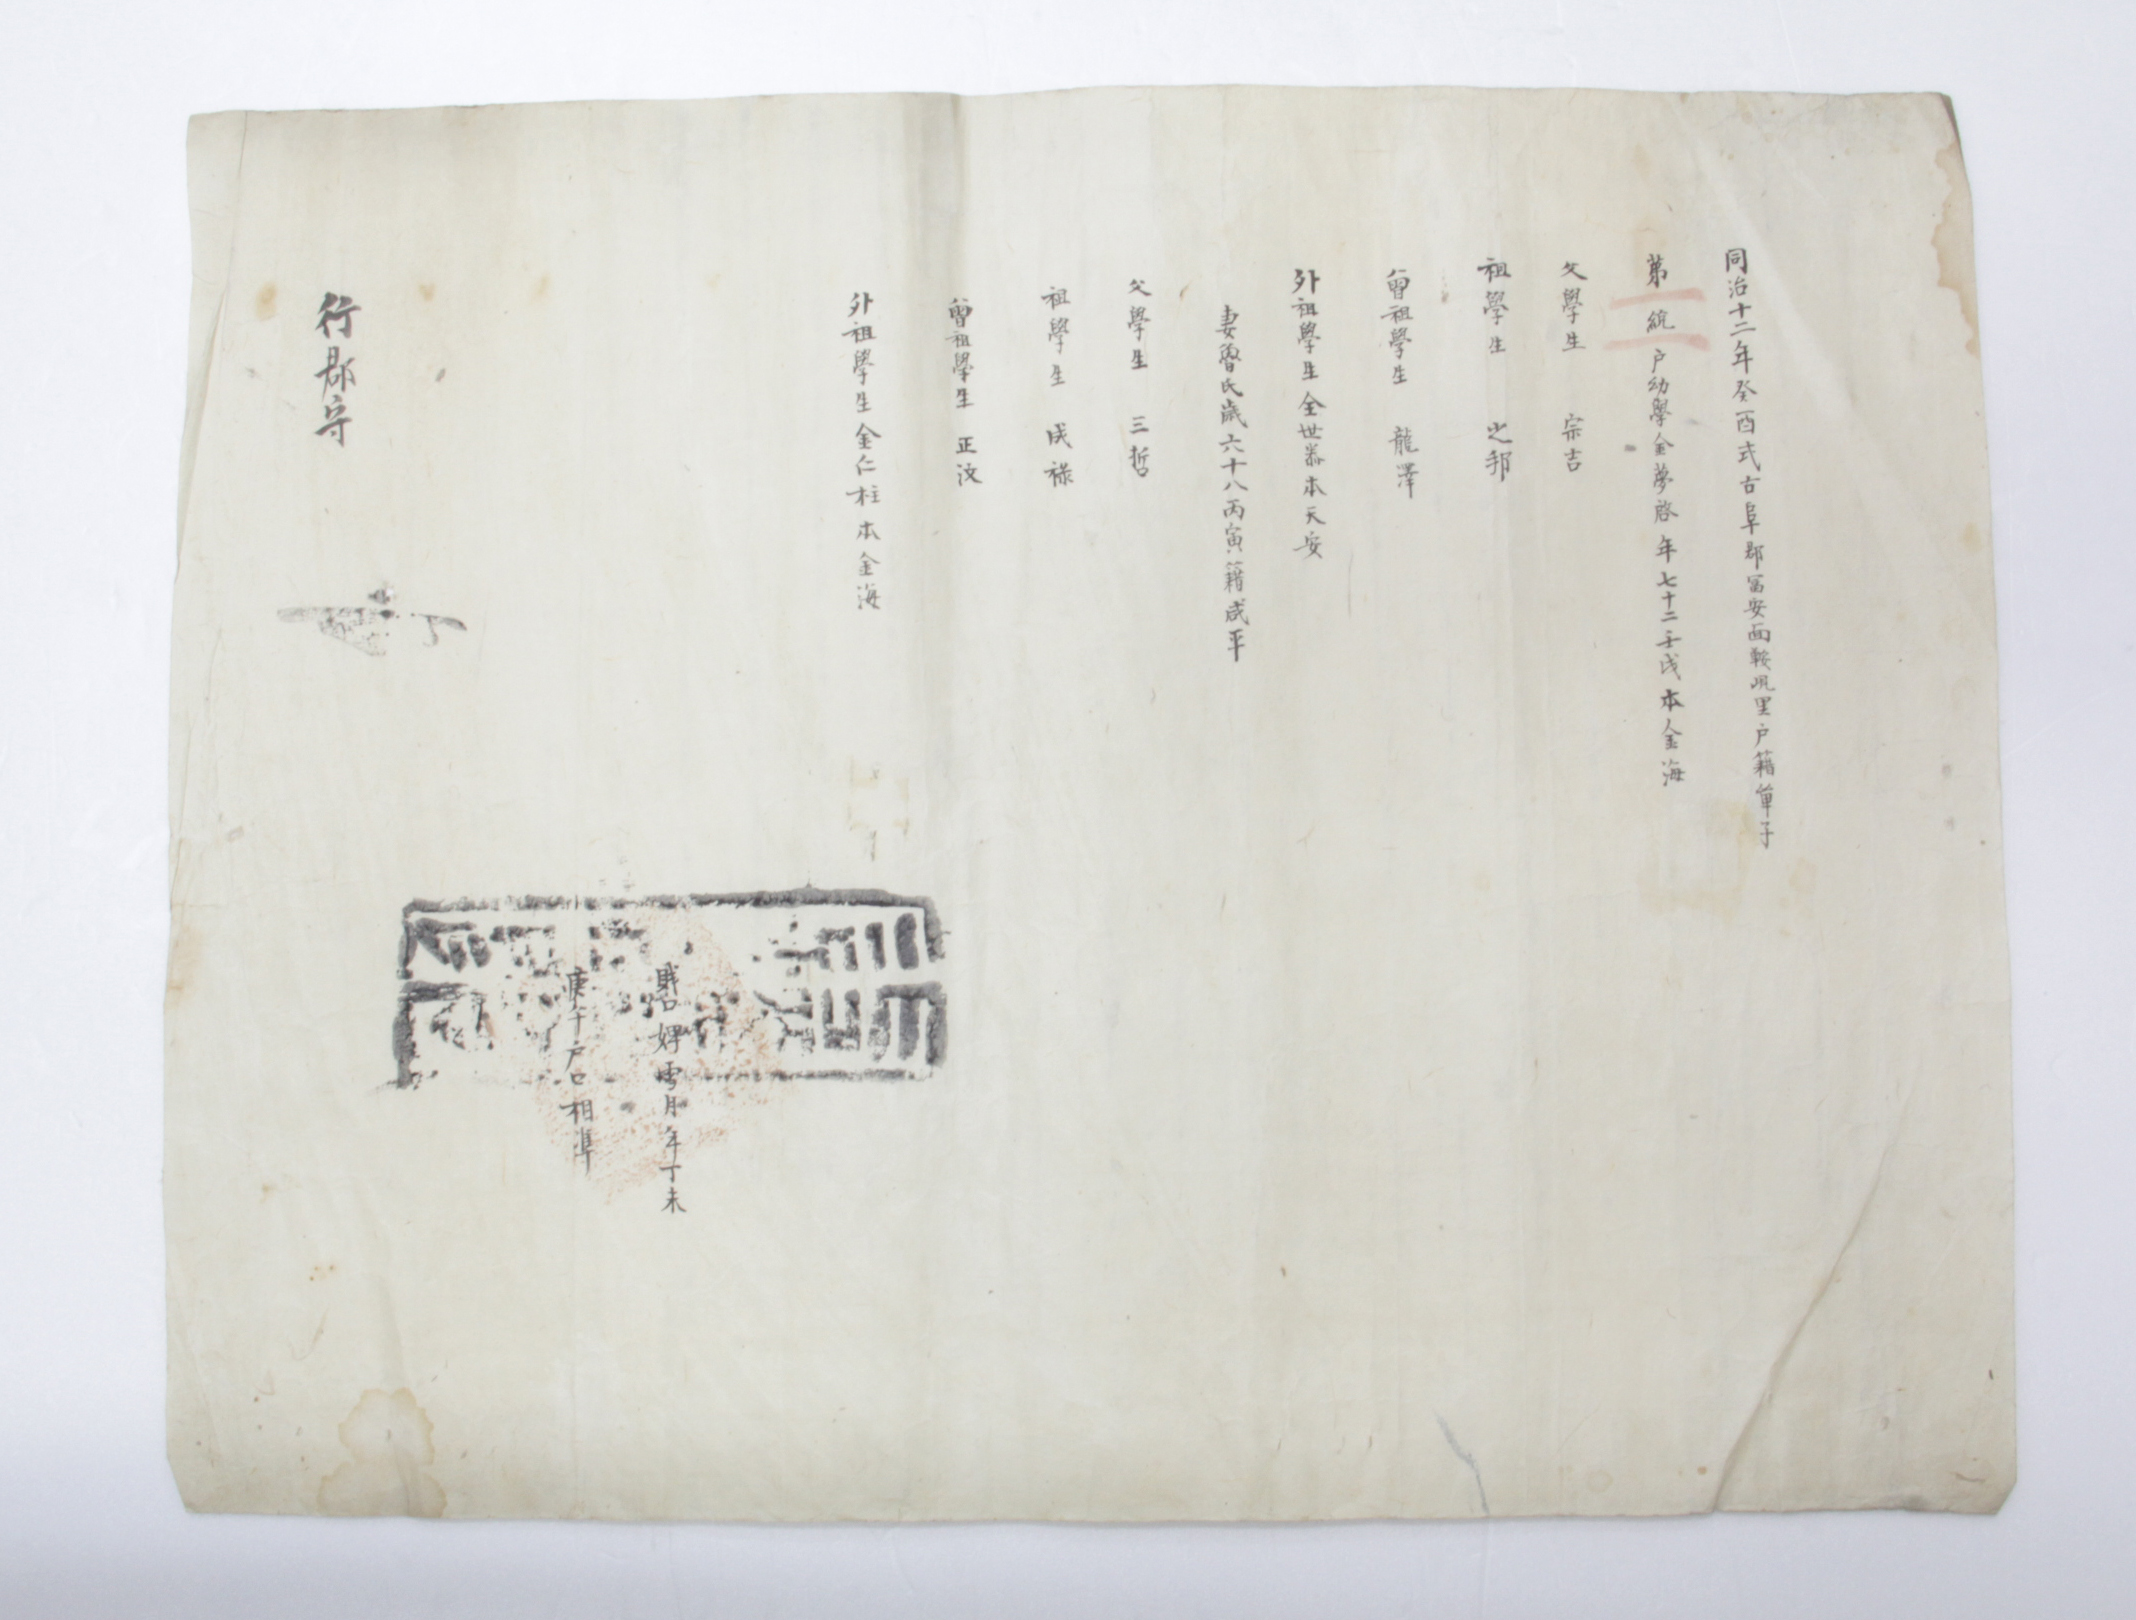 同治十二年癸酉式古阜郡富安面鞍峴里户籍單子
第 統 户幼學金夢啓年七十二壬戌本金海
父學生 宗吉
祖學生 之邦
曾祖學生 龍澤
外祖學生全世泰本天安
妻魯氏歲六十八丙寅籍咸平
父學生 三哲
祖學生 成祿
曾祖學生 正汶
外祖學生金仁柱本金海
賤口婢雪月年丁未
庚午户口相準
行郡守